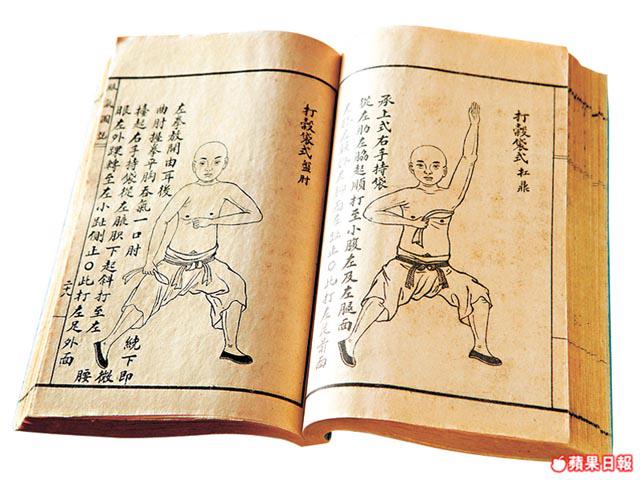 打穀袋式 扛鼎
承上式右手持袋
從左肋左脇起順打至小腹左及左腿面
左趾止〇此打左足前面
打穀袋式 盤肘
左拳放開由耳後繞下即
曲肘握拳平胸吞氣一口肘微
擡起右手持袋從左腋肷下起斜打至左腰
眼左外踝轉至左小趾側止〇此打左足外面
服氣圖說
蘋果日報